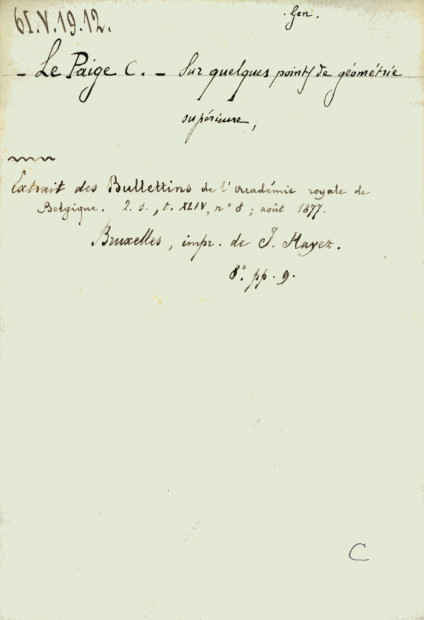 61.V.19.12.
Gen.
- Le Paige C. - Sur quelques points de géométrie
supérieure,
Extrait des Bullettins de l'académie royale de
Belgique. 2. s., t. XLIV, n° 8; août 1877.
Bruxelles, impr. de F. Hayez.
8.° pp. 9.
C